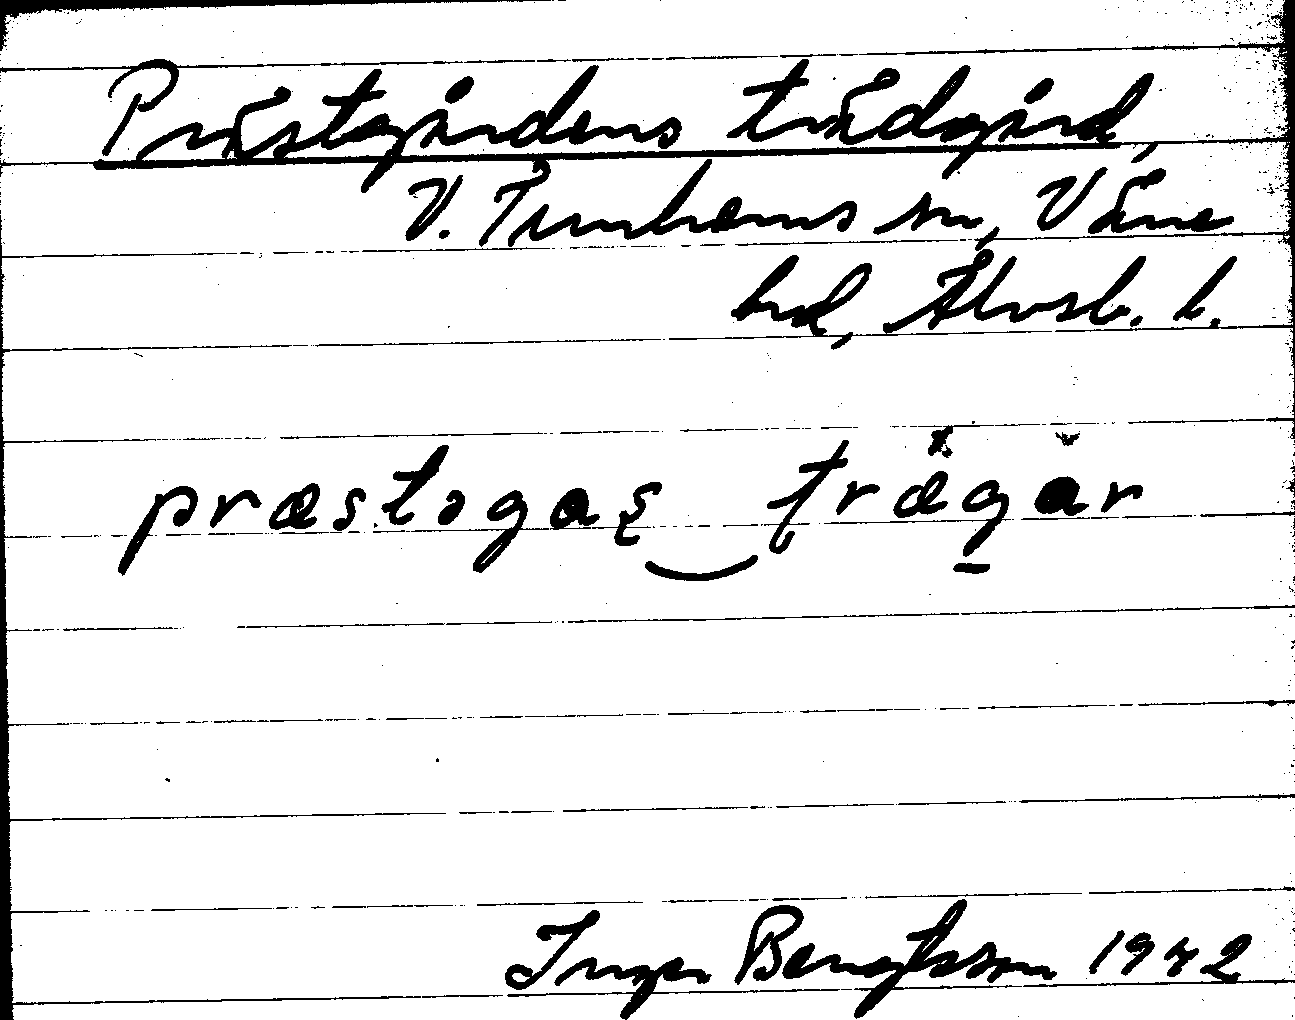 Prästgårdens trädgård,
V. Tunhems sn, Väne
hd, Älvsb. l.
præstəgaʂ ‿ ʈrægar
Inger Bengtsson 1942